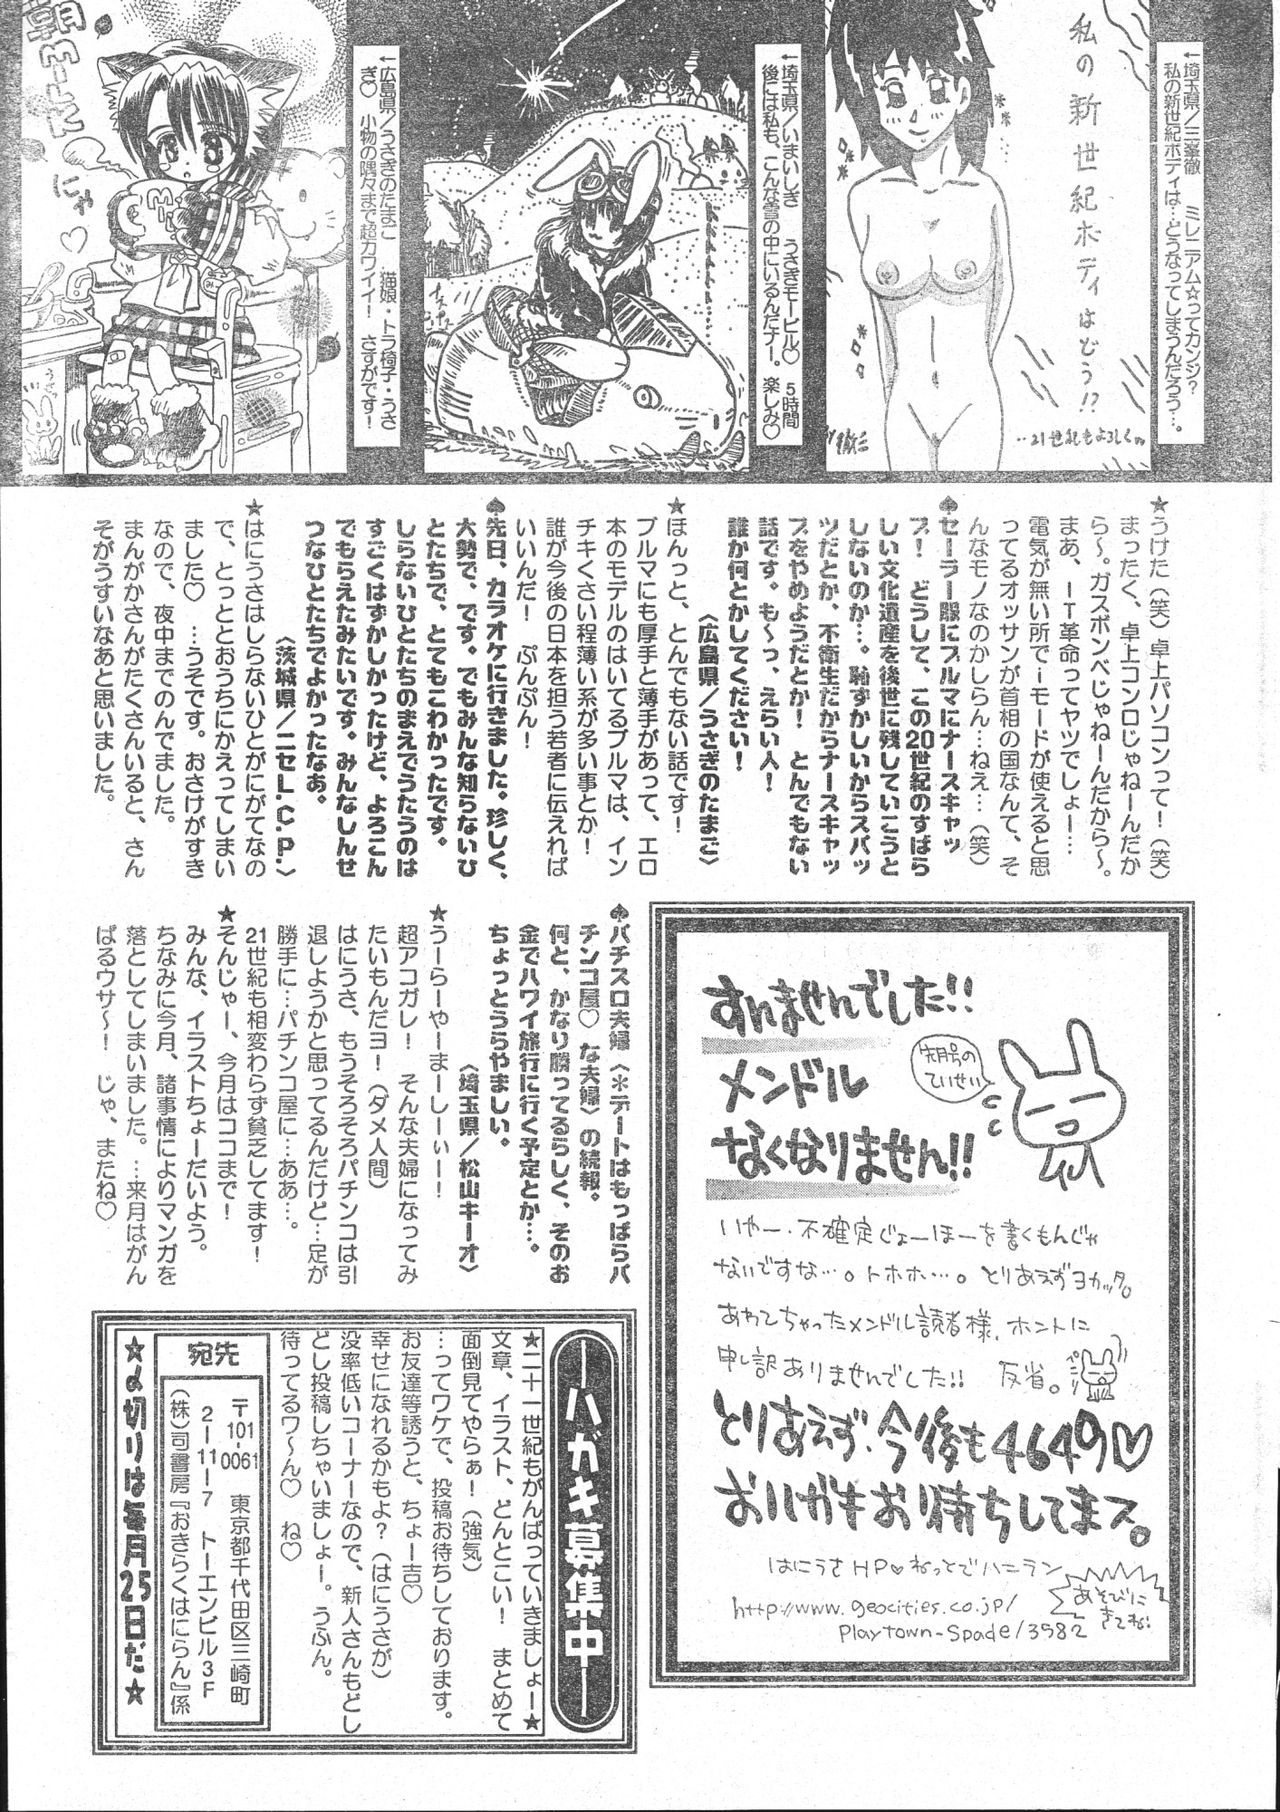 ←埼玉県／三峯徹　ミレニアム☆ってカンジ？
私の新世紀ボディは…どうなってしまうんだろう…。
私の新世紀ボディはどう!?
…21世紀もよろしく
←埼玉県／いまいしぎ　うさぎモービル♡　5時間
後には私も、こんな雪の中にいるんだナー。楽しみ♡
←広島県／うさぎのたまご　猫娘・トラ椅子・うさ
ぎ♡　小物の隅々まで超カワイイ！　さすがです！
にゃ♡
★うけた（笑）卓上パソコンって！（笑）
まったく、卓上コンロじゃねーんだか
ら～。ガスボンベじゃねーんだから～。
まあ、IT革命ってヤツでしょー…
電気が無い所でiモードが使えると思
ってるオッサンが首相の国なんて、そ
んなモノなのかしらん…ねえ…（笑）
♠セーラー服にブルマにナースキャッ
プ！　どうして、この20世紀のすばら
しい文化遺産を後世に残していこうと
しないのか…。恥ずかしいからスパッ
ツだとか、不衛生だからナースキャッ
プをやめようだとか！　とんでもない
話です。も～っ、えらい人！
誰か何とかしてください！
〈広島県／うさぎのたまご〉
★ほんっと、とんでもない話です！
ブルマにも厚手と薄手があって、エロ
本のモデルのはいてるブルマは、イン
チキくさい程薄い系が多い事とか！
誰が今後の日本を担う若者に伝えれば
いいんだ！　ぷんぷん！
♠先日、カラオケに行きました。珍しく、
大勢で、です。でもみんな知らないひ
とたちで、とてもこわかったです。
しらないひとたちのまえでうたうのは
すごくはずかしかったけど、よろこん
でもらえたみたいです。みんなしんせ
つなひとたちでよかったなあ。
〈茨城県／ニセL.C.P.〉
★はにうさはしらないひとがにがてなの
で、とっととおうちにかえってしまい
ました♡　…うそです。おさけがすき
なので、夜中までのんでました。
まんがかさんがたくさんいると、さん
そがうすいなあと思いました。
すんませんでした!!
メンドル
なくなりません!!
先月号の
ていせい
いやー・不確定じょーほーを書くもんじゃ
ないですな…。トホホ…。とりあえずヨカッタ。
あわてちゃったメンドル読者様、ホントに
申し訳ありませんでした!!　反省。
ペコリ
とりあえず・今後も4649♡
おハガキお待ちしてまス。
はにうさHP♡ねっとでハニラン
http://www.geocities.co.jp/
Playtown-Spade/3582
あそびに
きてね!
♠パチスロ夫婦〈＊デートはもっぱらパ
チンコ屋♡な夫婦〉の続報。
何と、かなり勝ってるらしく、そのお
金でハワイ旅行に行く予定とか…。
ちょっとうらやましい。
〈埼玉県／松山キーオ〉
★うーらーやーまーしーぃー！
超アコガレ！　そんな夫婦になってみ
たいもんだヨ！（ダメ人間）
はにうさ、もうそろそろパチンコは引
退しようかと思ってるんだけど…足が
勝手に…パチンコ屋に…ああ…。
21世紀も相変わらず貧乏してます！
★そんじゃー、今月はココまで！
みんな、イラストちょーだいよう。
ちなみに今月、諸事情によりマンガを
落としてしまいました。…来月はがん
ばるウサ～！　じゃ、またね♡
ハガキ募集中
★二十一世紀もがんばっていきましょー★
文章、イラスト、どんとこい！　まとめて
面倒見てやらぁ！（強気）
…ってワケで、投稿お待ちしております。
お友達等誘うと、ちょー吉♡
幸せになれるかもよ？（はにうさが）
没率低いコーナーなので、新人さんもどし
どし投稿しちゃいましょー。うふん。
待ってるワ～ん♡　ね♡
宛先
〒101-0061　東京都千代田区三崎町
2-11-7　トーエンビル3F
（株）司書房『おきらくはにらん』係
★〆切りは毎月25日だ★